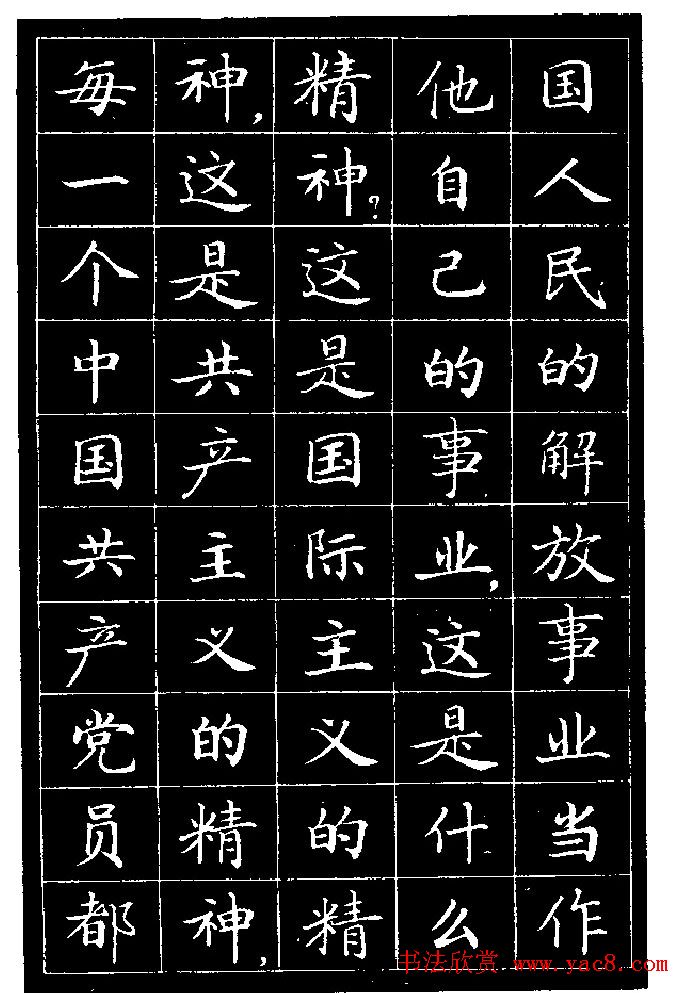 国人民的解放事业当作
他自己的事业,这是什么
精神?这是国际主义的精
神,这是共产主义的精神,
每一个中国共产党员都
书法欣赏 www.yac8.com